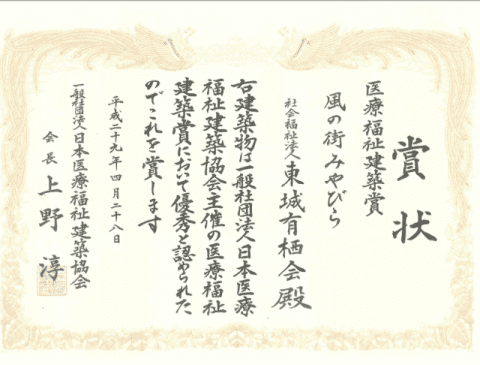 賞状
医療福祉建築賞
風の街みやびら
社会福祉法人 東城有栖会 殿
右建築物は一般社団法人日本医療
福祉建築協会主催の医療福祉
建築賞において優秀と認められた
のでこれを賞します
平成二十九年四月二十八日
一般社団法人日本医療福祉建築協会
会長 上野 淳